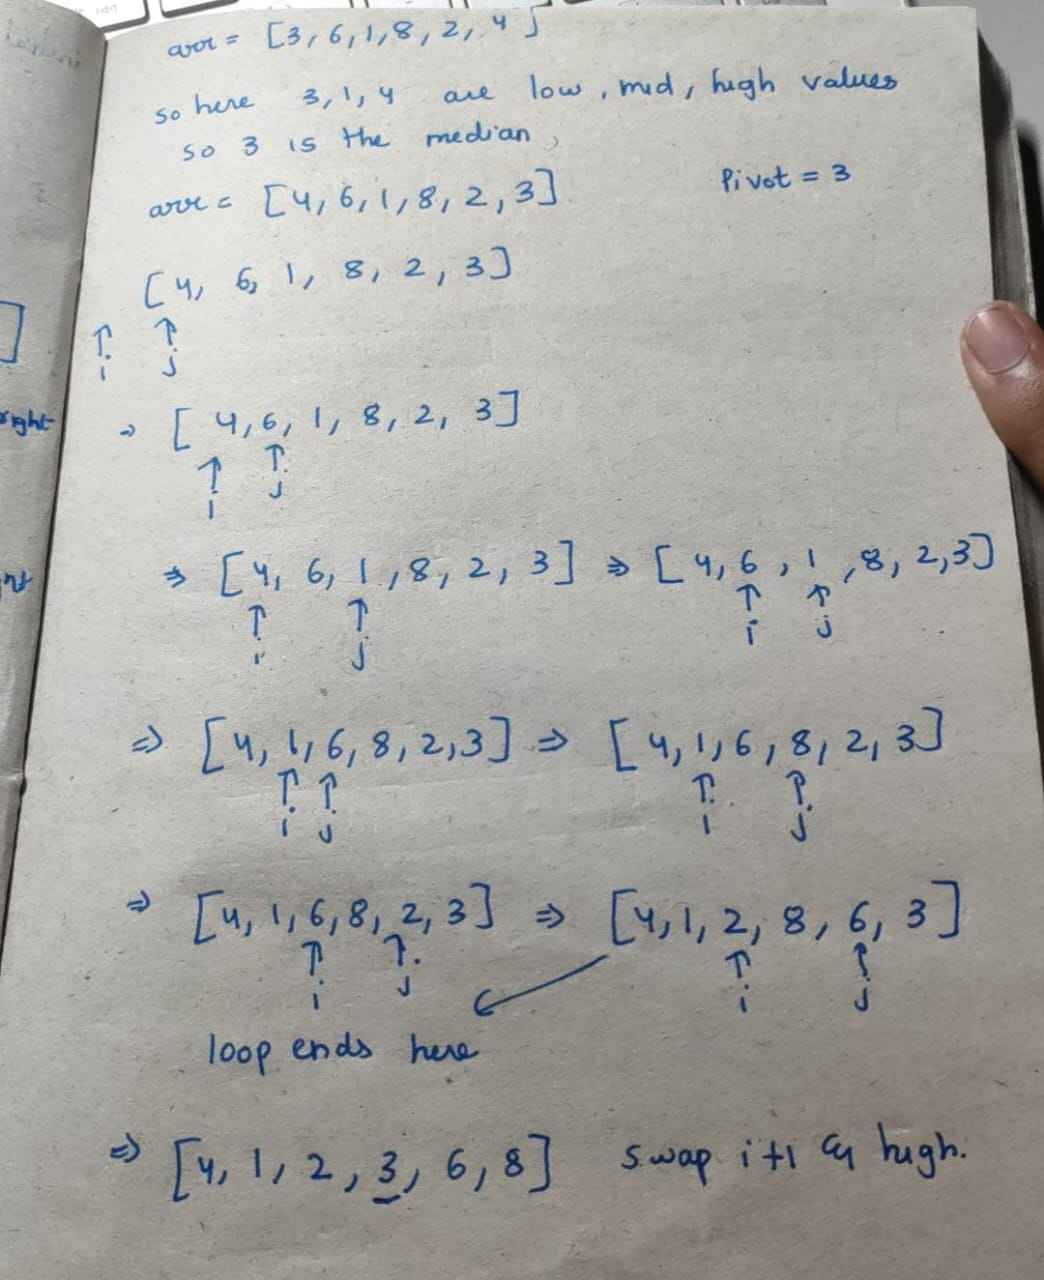 arr = [3, 6, 1, 8, 2, 4]
so here 3, 1, 4 are low, mid, high values
so 3 is the median,
arr = [4, 6, 1, 8, 2, 3] Pivot = 3
[4, 6, 1, 8, 2, 3]
↑ ↑
i j
→ [4, 6, 1, 8, 2, 3]
right
↑ ↑
i j
⇒ [4, 6, 1, 8, 2, 3] ⇒ [4, 6, 1, 8, 2, 3]
↑ ↑ ↑ ↑
i j i j
⇒ [4, 1, 6, 8, 2, 3] ⇒ [4, 1, 6, 8, 2, 3]
↑ ↑ ↑ ↑
i j i j
⇒ [4, 1, 6, 8, 2, 3] ⇒ [4, 1, 2, 8, 6, 3]
↑ ↑ ↑ ↑
i j i j
loop ends here
⇒ [4, 1, 2, 3, 6, 8] swap i+1 & high.